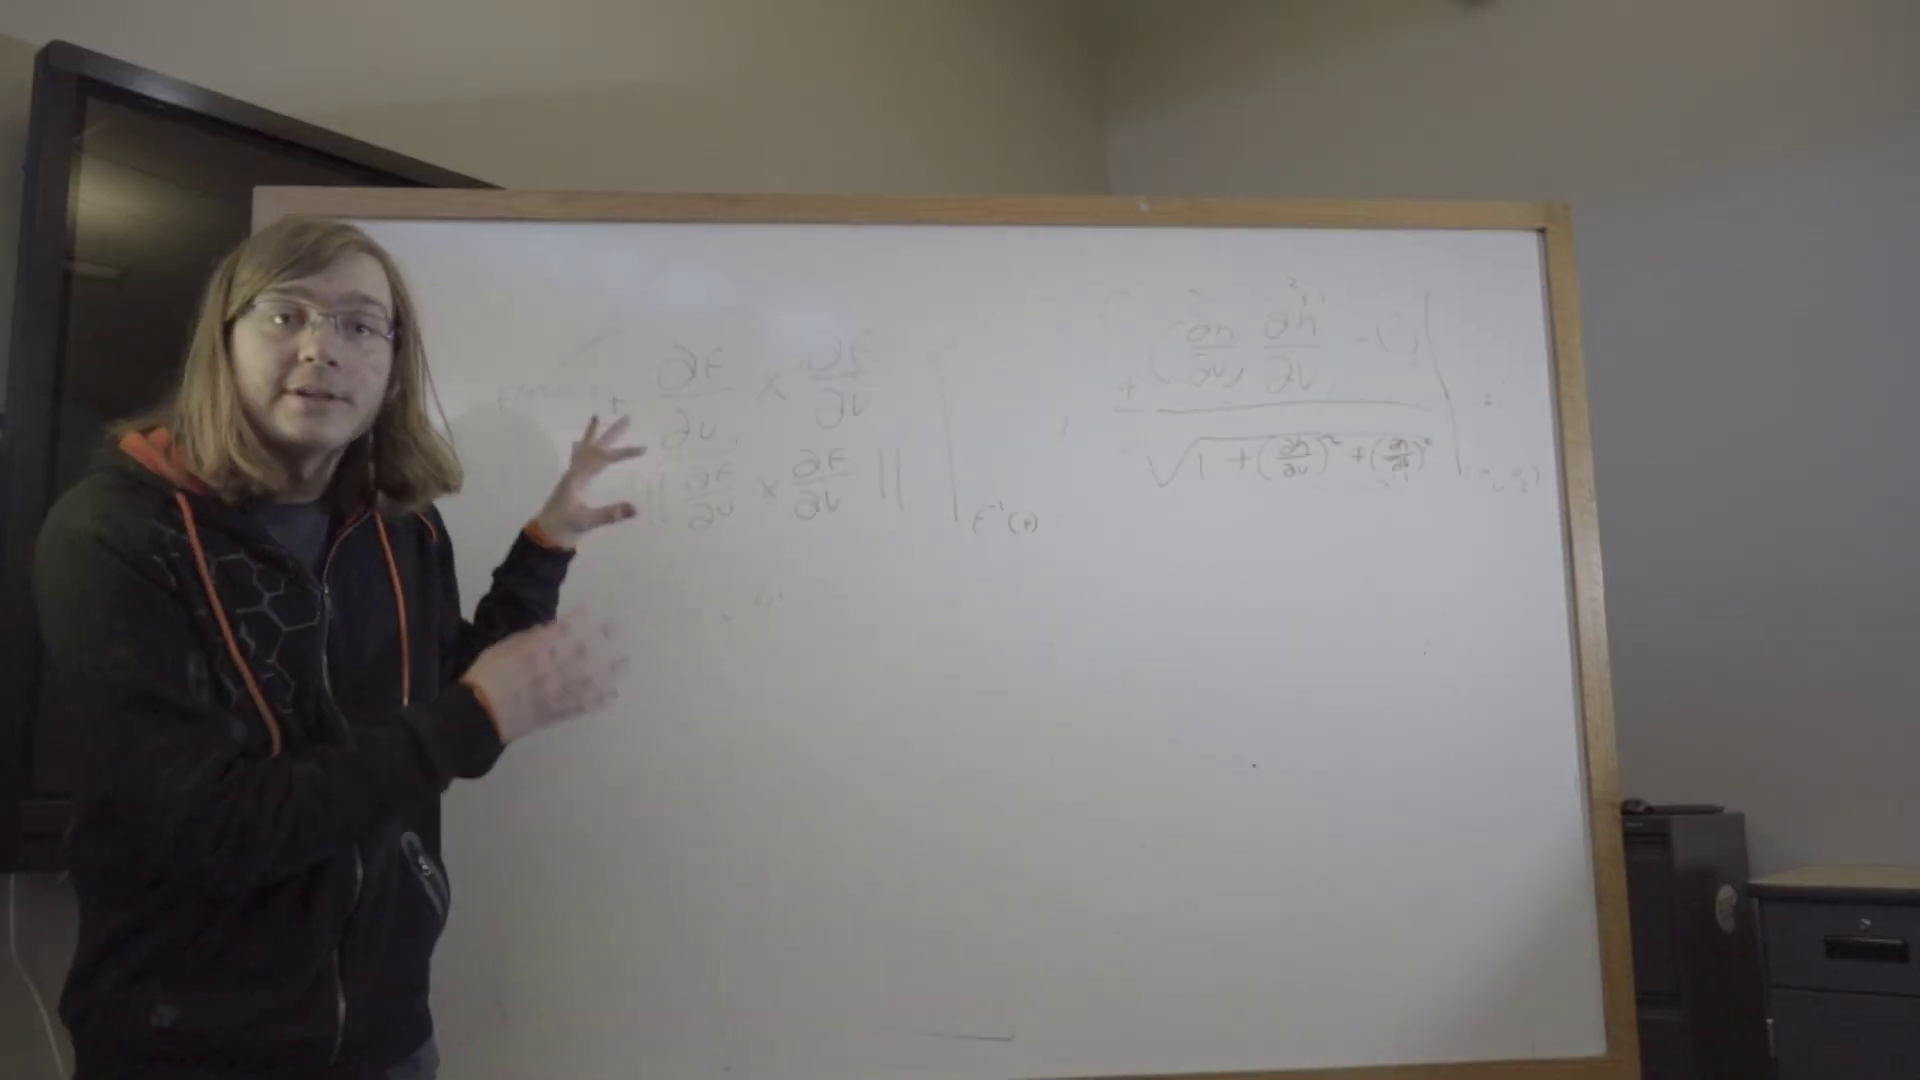 ± ∂F/∂u × ∂F/∂v
|| ∂F/∂u × ∂F/∂v || | F⁻¹(p)
± (∂h/∂u, ∂h/∂v, -1) |
√1 + (∂h/∂u)² + (∂h/∂v)²